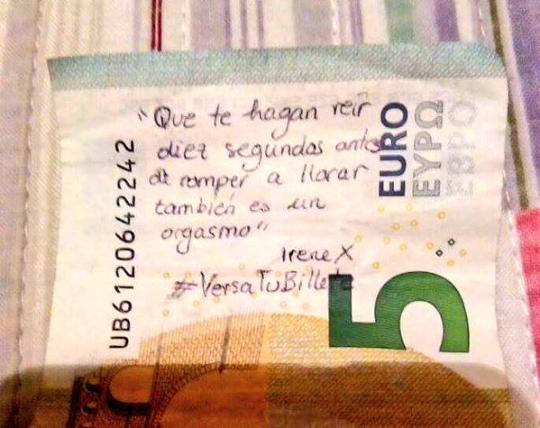 "Que te hagan reir
diez segundos antes
de romper a llorar
también es un
orgasmo"
Irene X
#VersaTuBillete
UB6120642242
EURO
ΕΥΡΩ
ЕВРО
5